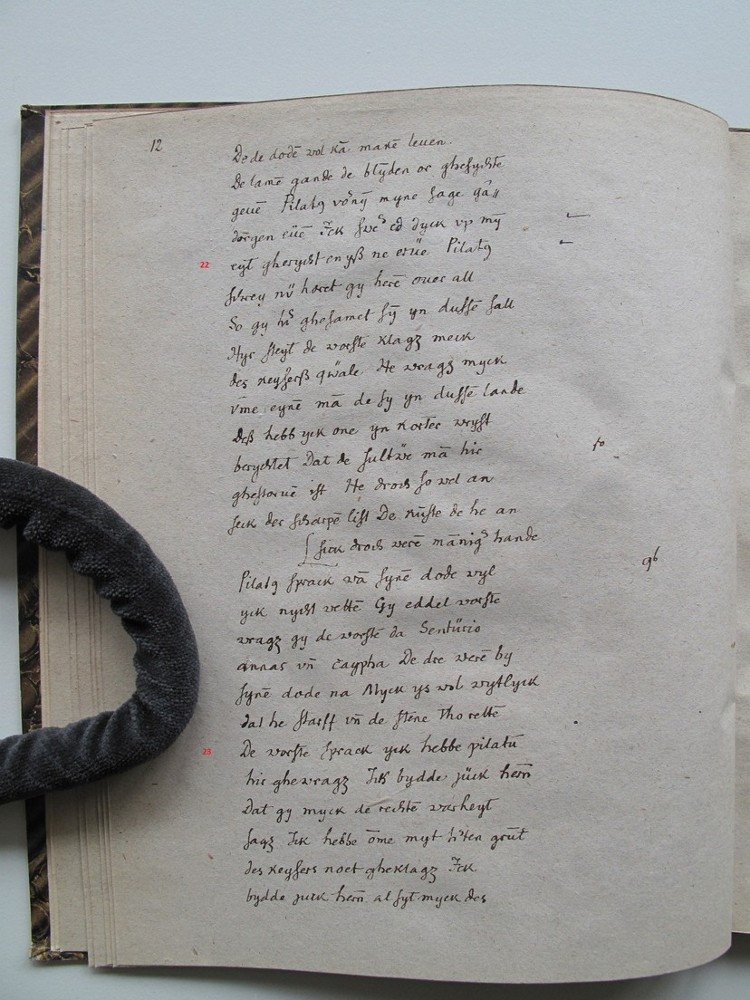 12
De de dodē wol kā makē leuen.
De lamē gande de blyden or ghesychte
geuē Pilatꝯ vorny myne sage
dorgen eue Ick dyck vp my
22
eyt gherychst enyß ne erue Pilatꝯ
schrey nu horet gy herē ouer all
So gy hir ghesamet sy yn dusse fall
Hyr steyt de vorste klagz meck
des keysers qwale. He vragz myck
vme eynē mā de sy yn dusse lande
Deß hebb yck one yn korter vryst
berychtet Dat de sulue mā hir
ghestorue ist He droch so wel an
seck der scharpē list De kunste de he an
seck droch werē mānigr hande
Pilatꝯ sprack vā synē dode wyl
yck nycht vettē Gy eddel vorste
vragz gy de vorste da Senturio
annas vn̄ Caypha De dre werē by
synē dode na Myck ys wol wytlyck
dat he starff vn̄ de stene thorettē
23
De vorste sprack yck hebbe pilatū
hir ghevragz Ick bydde juck hern
Dat gy myck de rechte varheyt
sagz Ick hebbe ōme myt
des keysers noet gheklagz Ick
bydde juck hern al syt myck des